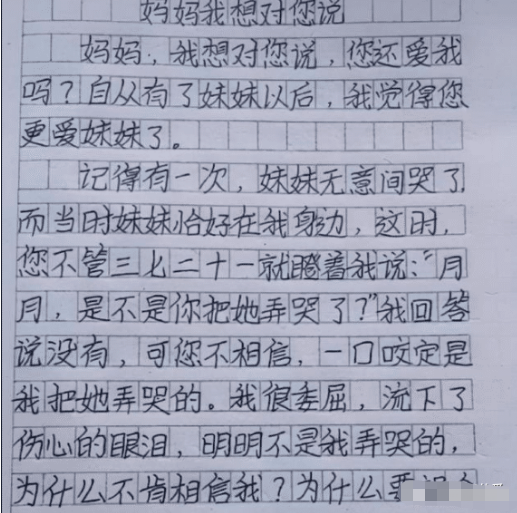 妈妈我想对您说
妈妈，我想对您说，您还爱我
吗？自从有了妹妹以后，我觉得您
更爱妹妹了。
记得有一次，妹妹无意间哭了，
而当时妹妹恰好在我身边，这时，
您不管三七二十一就瞪着我说：“月
月，是不是你把她弄哭了？”我回答
说没有，可您不相信，一口咬定是
我把她弄哭的。我很委屈，流下了
伤心的眼泪，明明不是我弄哭的，
为什么不肯相信我？为什么要